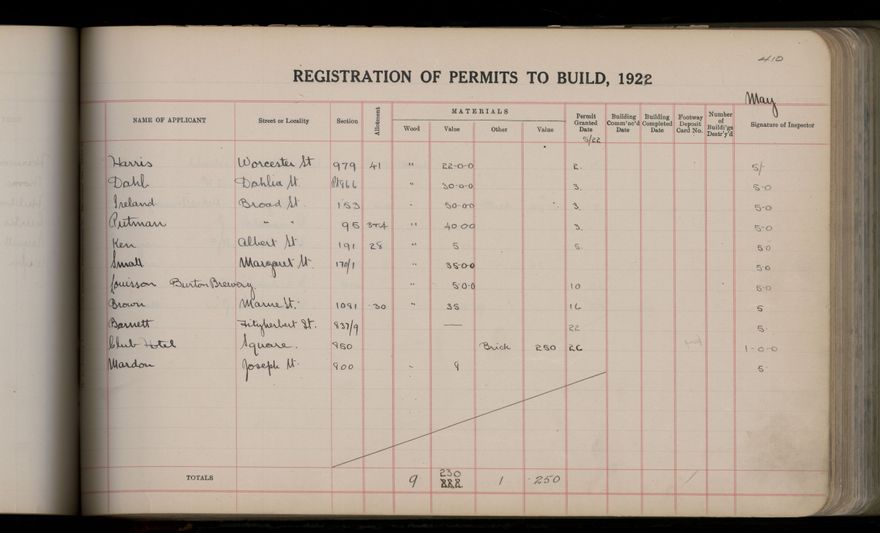 410
REGISTRATION OF PERMITS TO BUILD, 1922
May
NAME OF APPLICANT Street or Locality Section Allotment MATERIALS Wood Value Other Value Permit Granted Date 5/22 Building Comm'nc'd Date Building Completed Date Footway Deposit Card No. Number of Buildi'gs Destr'y'd Signature of Inspector
Harris Worcester St 979 41 " 22-0-0 2. 5/-
Dahl Dahlia St. Pt866 " 30-0-0 3. 5-0
Ireland Broad St. 153 " 50-0-0 3. 5-0
Pitman " " 95 3+4 " 40-0-0 3. 5-0
Ken Albert St. 191 28 " 5 5. 5.0
Small Margaret St. 170/1 " 35-0-0 5-0
Louisson Burton Brewery. " 5-0-0 10 5-0
Brown Marne St. 1091 30 " 35 16 5
Barnett Fitzherbert St. 837/9 — 22 5.
Club Hotel Square. 850 Brick 250 26 1-0-0
Mardon Joseph St. 800 " 8 5
TOTALS 9 230 1 250